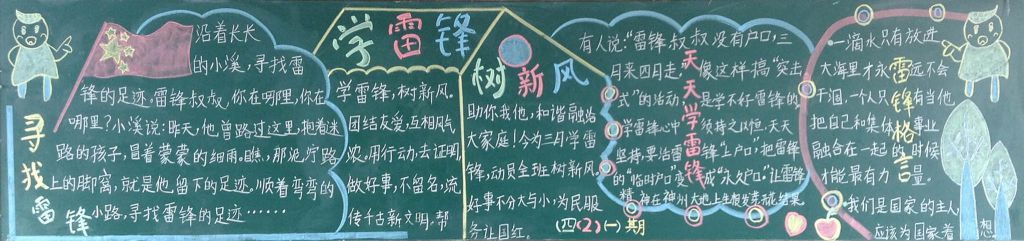 寻找雷锋
沿着长长
的小溪，寻找雷
锋的足迹。雷锋叔叔，你在哪里，你在
哪里？小溪说：昨天，他曾路过这里，抱着迷
路的孩子，冒着蒙蒙的细雨。瞧，那泥泞路
上的脚窝，就是他留下的足迹。顺着弯弯的
小路，寻找雷锋的足迹……
学雷锋
树新风
学雷锋，树新风。
团结友爱，互相风气
浓。用行动，去证明，
做好事，不留名，流
传千古新文明。帮
助你我他，和谐融洽
大家庭！今为三月学雷
锋，动员全班树新风。
好事不分大与小，为民服
务让国红。
(四(2)(一)期
有人说："雷锋叔叔没有户口，三
月来四月走，"像这样搞"突击
式"的活动，是学不好雷锋的
学雷锋心中须持之以恒，天天
坚持，要治雷锋"上户口"，把雷锋
的"临时户口"变成"永久户口"让雷锋
精神在神州大地上生根发芽开花结果
天天学雷锋
一滴水只有放进
大海里才永远不会
干涸，一个人只有当他
把自己和集体事业
融合在一起的时候
才能最有力量。
我们是国家的主人，
应该为国家着想
雷锋格言